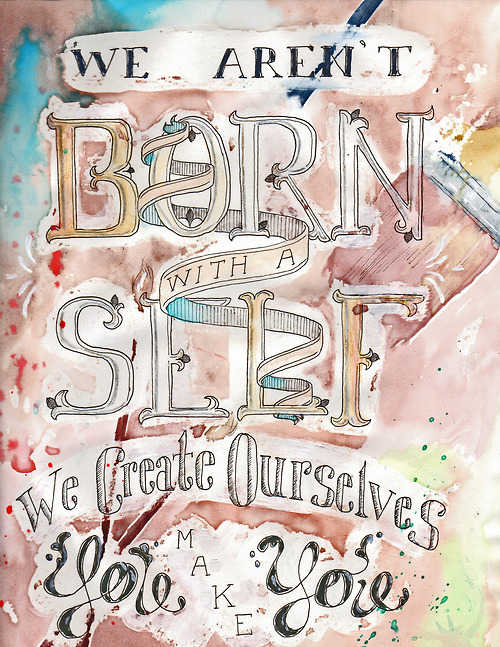 WE AREN'T
BORN
WITH A
SELF
We Create Ourselves
You MAKE You